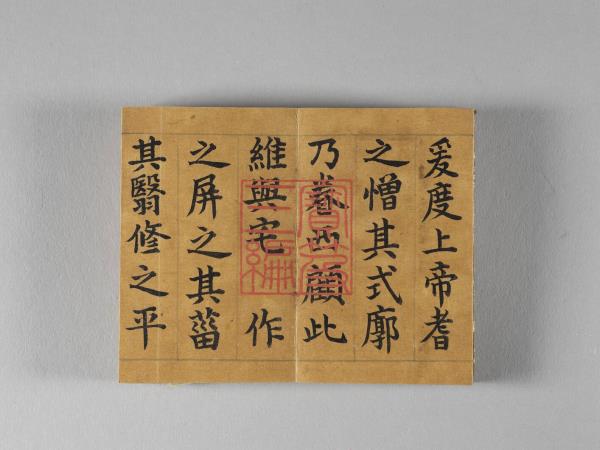 爰度上帝耆
之憎其式廓
乃眷西顧此
維與宅 作
之屏之其菑
其翳修之平